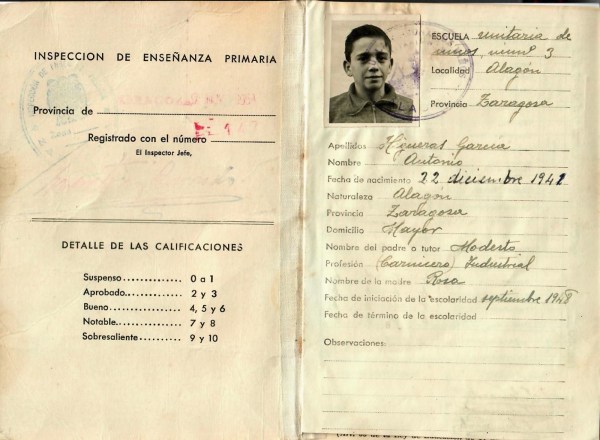 INSPECCION DE ENSEÑANZA PRIMARIA
Provincia de
Registrado con el número
El Inspector Jefe,
DETALLE DE LAS CALIFICACIONES
Suspenso.............. 0 a 1
Aprobado.............. 2 y 3
Bueno................. 4, 5 y 6
Notable............... 7 y 8
Sobresaliente.......... 9 y 10
ESCUELA unitaria de
niños, núm° 3
Localidad Alagón
Provincia Zaragoza
Apellidos Higueras García
Nombre Antonio
Fecha de nacimiento 22 diciembre 1941
Naturaleza Alagón
Provincia Zaragoza
Domicilio Mayor
Nombre del padre o tutor Modesto
Profesión (Carnicero) Industrial
Nombre de la madre Rosa
Fecha de iniciación de la escolaridad septiembre 1948
Fecha de término de la escolaridad
Observaciones: